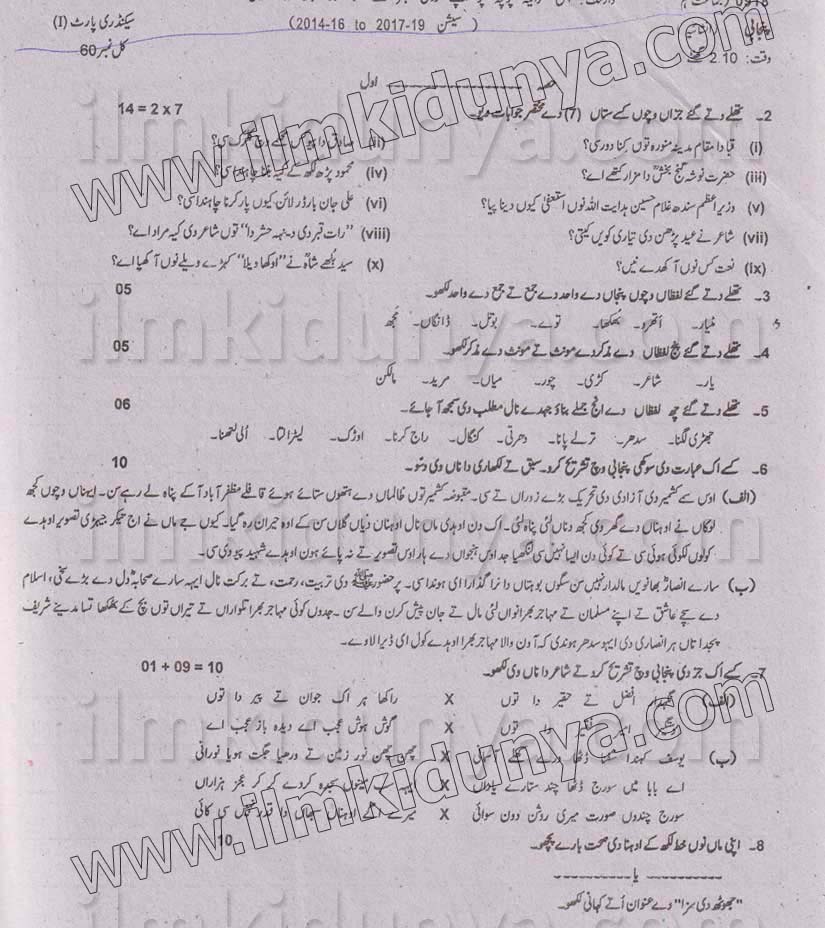 سیکنڈری پارٹ (I)
(2014-16 to 2017-19) سیشن
پنجابی
کل نمبر 60
وقت: 2.10
حصہ اول
2۔ تھلے دتے گئے جزاں وچوں کسے ستاں (7) دے مختصر جوابات دیو۔ 14 = 2 x 7
(i) قبا دا مقام مدینہ منورہ توں کنا دور سی؟ (ii)
(iii) حضرت نوشہ گنج بخشؒ دا مزار کتھے اے؟ (iv) محمود پڑھ لکھ کے کیہ بننا چاہندا سی؟
(v) وزیراعظم سندھ غلام حسین ہدایت اللہ نوں استعفیٰ کیوں دینا پیا؟ (vi) علی جان بارڈر لائن کیوں پار کرنا چاہندا سی؟
(vii) شاعر نے عید پڑھن دی تیاری کویں کیتی؟ (viii) "رات قبر دی دینہہ حشر دا" توں شاعر دی کیہ مراد اے؟
(ix) نعت کس نوں آکھدے نیں؟ (x) سید بلھے شاہؒ نے "اوکھا ویلا" کہڑے ویلے نوں آکھیا اے؟
3۔ تھلے دتے گئے لفظاں وچوں پنجاں دے واحد دے جمع تے جمع دے واحد لکھو۔ 05
مٹیار۔ اتھرو۔ بھکھا۔ توے۔ بوتل۔ ڈانگاں۔ مجھ
4۔ تھلے دتے گئے پنج لفظاں دے مذکر دے مونث تے مونث دے مذکر لکھو۔ 05
یار۔ شاعر۔ کڑی۔ چور۔ میاں۔ مرید۔ مالکن
5۔ تھلے دتے گئے چھ لفظاں دے انج جملے بناؤ جہدے نال مطلب دی سمجھ آ جائے۔ 06
جھڑی لگنا۔ سدھر۔ ترلے پانا۔ دھرتی۔ کنگال۔ راج کرنا۔ اوڑک۔ لیڑا لتا۔ اُلی لتھنا۔
6۔ کسے اک عبارت دی سوکھی پنجابی وچ تشریح کرو۔ سبق تے لکھاری دا ناں وی دسو۔ 10
(الف) اوس سے کشمیر دی آزادی دی تحریک بڑے زوراں تے سی۔ مقبوضہ کشمیر توں ظالماں دے ہتھوں ستائے ہوئے قافلے مظفر آباد آ کے پناہ لے رہے سن۔ ایہناں وچوں کجھ
لوکاں نے اوہناں دے گھر وی کجھ دناں لئی پناہ لئی۔ اک دن اوہدی ماں نال اوہناں دیاں گلاں سن کے اوہ حیران رہ گیا۔ کیوں جے ماں نے اج تیکر جیہڑی تصویر اوہدے
کولوں لکوئی ہوئی سی تے کوئی دن ایسا نہیں سی لنگھیا جد اوس ہنجواں دے ہار اوس تصویر تے نہ پائے ہون اوہدے شہید پیو دی سی۔
(ب) سارے انصارؓ بھانویں مالدار نہیں سن سگوں بوہتاں دا نرا گذارا ای ہوندا سی۔ پر حضورﷺ دی تربیت، رحمت، تے برکت نال ایہہ سارے صحابہؓ دل دے بڑے سخی، اسلام
دے سچے عاشق تے اپنے مسلمان تے مہاجر بھرانواں لئی مال تے جان پیش کرن والے سن۔ جدوں کوئی مہاجر بھرا تلواراں تے تیراں توں بچ کے بھکھا تسا مدینے شریف
پجدا تاں ہر انصاری دی ایہو سدھر ہوندی کہ آون والا مہاجر بھرا اوہدے کول ای ڈیرا لاوے۔
7۔ کسے اک جز دی پنجابی وچ تشریح کرو تے شاعر دا ناں وی لکھو۔ 01 + 09 = 10
(الف) نگہدار افضل تے حقیر دا توں X راکھا ہر اک جوان تے پیر دا توں
امیر فقیر دا توں X گوش ہوش عجب اے دیدہ باز عجب اے
(ب) یوسف کہندا سفنا ڈٹھا X چھن نور زمین تے ورھیا جگت ہویا نورانی
اے بابا میں سورج ڈٹھا چند ستارے X سجدہ کردے کر کر عجز ہزاراں
سورج چندوں صورت میری روشن دون سوائی X میرے اوہناں
8۔ اپنی ماں نوں خط لکھ کے اوہنا دی صحت بارے پچھو۔ 10
یا
"جھوٹھ دی سزا" دے عنوان اُتے کہانی لکھو۔
www.ilmkidunya.com
www.ilmkidunya.com
ilmkidunya.com
ilmkidunya.com
ilmkidunya.com
ilmkidunya.com
ilmkidunya.com